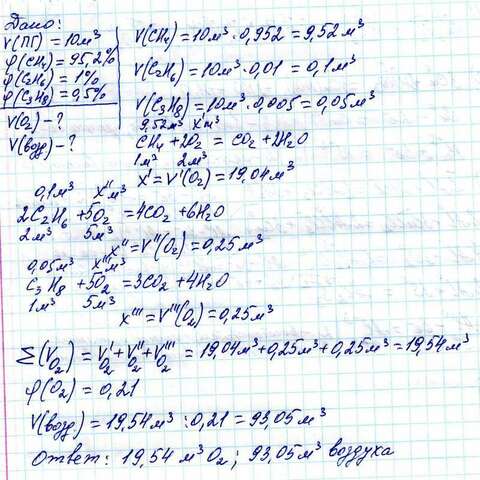 Дано:
V(ПГ) = 10м³
φ(CH₄) = 95,2%
φ(C₂H₆) = 1%
φ(C₃H₈) = 0,5%
V(O₂) - ?
V(возд) - ?
V(CH₄) = 10м³ · 0,952 = 9,52м³
V(C₂H₆) = 10м³ · 0,01 = 0,1м³
V(C₃H₈) = 10м³ · 0,005 = 0,05м³
9,52м³ x'м³
CH₄ + 2O₂ = CO₂ + 2H₂O
1м³ 2м³
x' = V'(O₂) = 19,04м³
0,1м³ x''м³
2C₂H₆ + 5O₂ = 4CO₂ + 6H₂O
2м³ 5м³
x'' = V''(O₂) = 0,25м³
0,05м³ x'''м³
C₃H₈ + 5O₂ = 3CO₂ + 4H₂O
1м³ 5м³
x''' = V'''(O₂) = 0,25м³
Σ(V O₂) = V' O₂ + V'' O₂ + V''' O₂ = 19,04м³ + 0,25м³ + 0,25м³ = 19,54м³
φ(O₂) = 0,21
V(возд.) = 19,54м³ : 0,21 = 93,05м³
Ответ: 19,54 м³ O₂; 93,05м³ воздуха